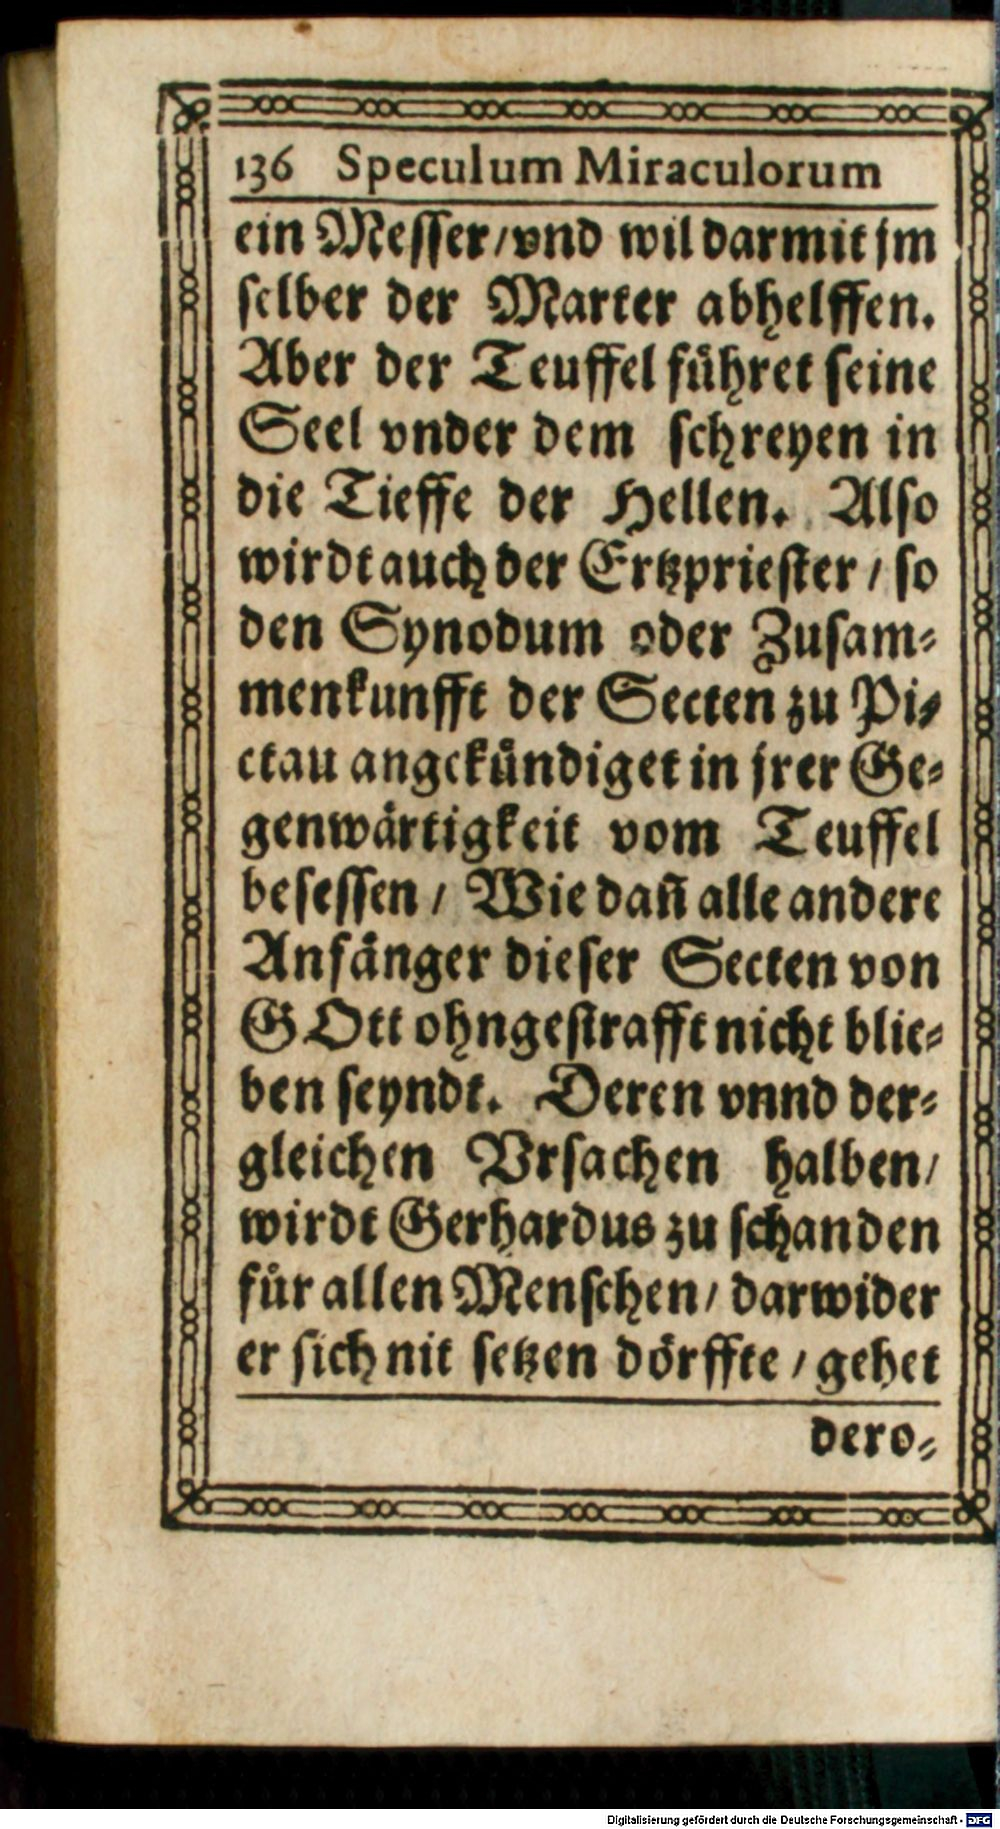 136 Speculum Miraculorum
ein Messer/vnd wil darmit jm
selber der Marter abhelffen.
Aber der Teuffel führet seine
Seel vnder dem schreyen in
die Tieffe der Hellen. Also
wirdt auch der Ertzpriester / so
den Synodum oder Zusam-
menkunfft der Secten zu Pi-
ctau angekündiget in jrer Ge-
genwärtigkeit vom Teuffel
besessen / Wie dañ alle andere
Anfänger dieser Secten von
GOtt ohngestrafft nicht blie-
ben seyndt. Deren vnnd der-
gleichen Vrsachen halben/
wirdt Gerhardus zu schanden
für allen Menschen/ darwider
er sich nit setzen dörffte / gehet
dero-
Digitalisierung gefördert durch die Deutsche Forschungsgemeinschaft - DFG